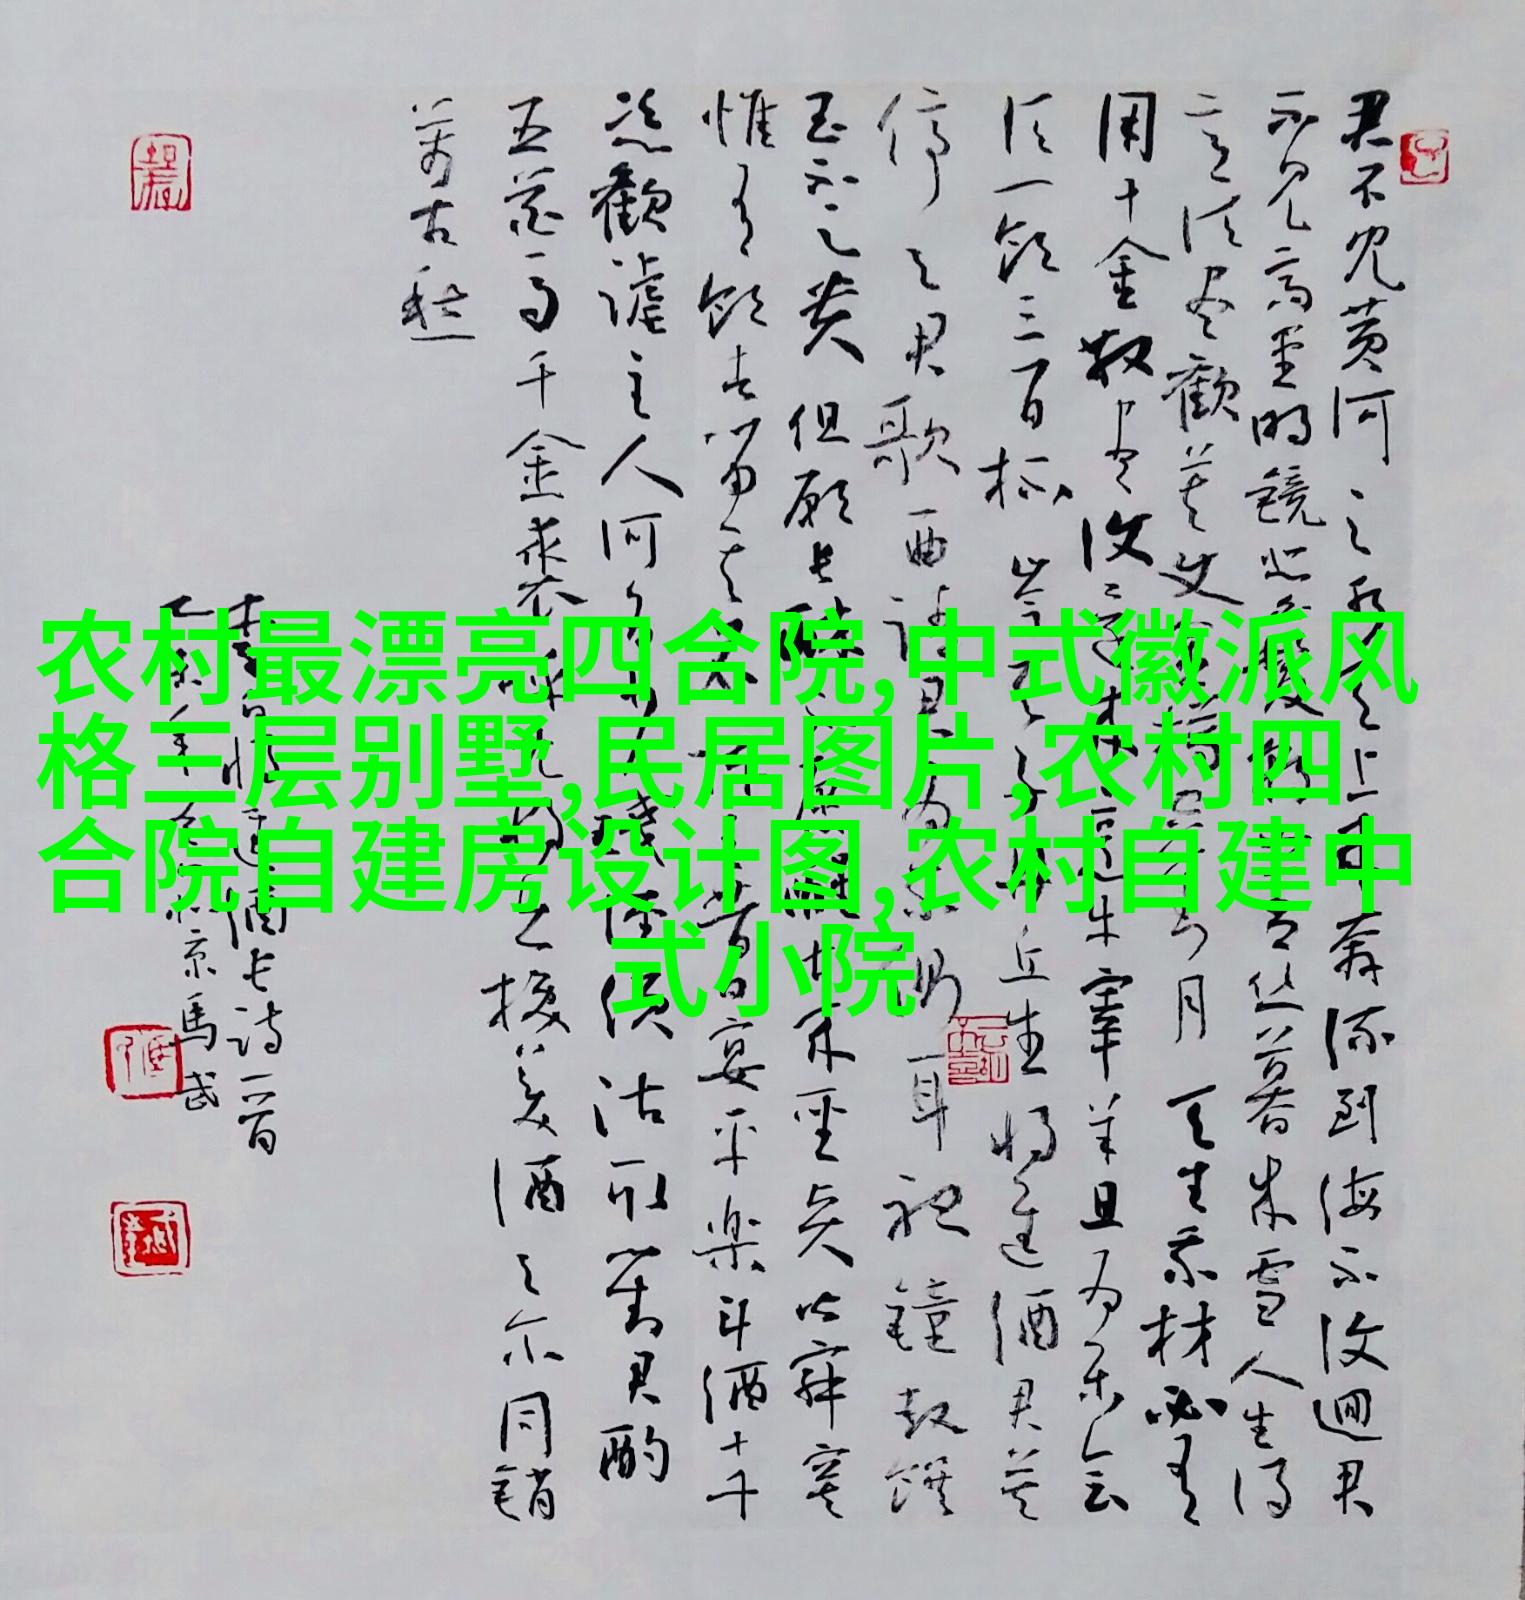 农村最漂亮四合院,中式徽派风
格三层别墅,民居图片,农村四
合院自建房设计图,农村自建中
式小院
君不见黄河之水天上来奔流到海不復迴君
不见高堂明镜悲白髮朝如青丝暮成雪人生得
意须尽歡莫使金樽空对月天生我材必有
用千金散尽復还来烹牛宰羊且为乐会
须一饮三百杯岑夫子丹丘生将进酒君莫
停与君歌一曲请君为我侧耳听鐘鼓馔
玉不足贵但愿长醉不愿醒古来圣贤皆寂寞
惟有饮者留其名陈王昔时宴平樂斗酒十千
恣歡谑主人何为言少钱径须沽取对君酌
五花马千金裘呼儿将出换美酒与尔同销
萬古愁
李白将进酒长诗一首
乙未年京馬武